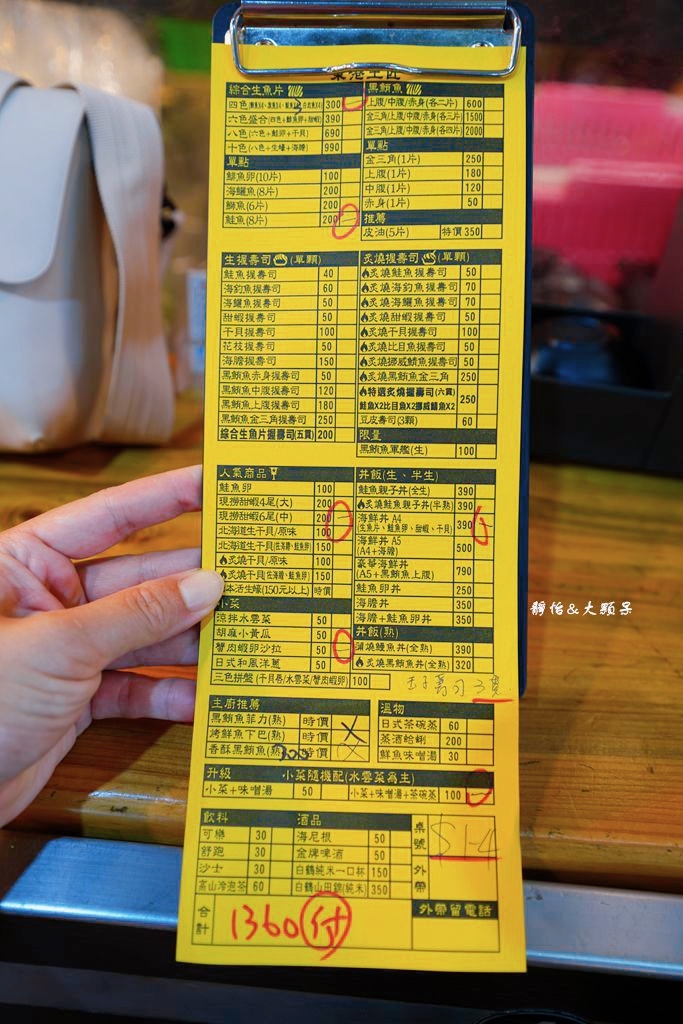 東港工匠
綜合生魚片
四色 300 一
六色盛合(四色+鮭魚卵+甜蝦) 390
八色(六色+鮭卵+干貝) 690
十色(八色+生蠔+海膽) 990
單點
鯡魚卵(10片) 100
海鱺魚(8片) 200
鰤魚(6片) 200
鮭魚(8片) 200 一
黑鮪魚
上腹/中腹/赤身(各二片) 600
金三角/上腹/中腹/赤身(各三片) 1500
金三角/上腹/中腹/赤身(各四片) 2000
單點
金三角(1片) 250
上腹(1片) 180
中腹(1片) 120
赤身(1片) 50
推薦
皮油(5片) 特價350
生握壽司(單顆)
鮭魚握壽司 40
海釣魚握壽司 60
海鱺魚握壽司 50
甜蝦握壽司 50
干貝握壽司 100
花枝握壽司 50
海膽握壽司 150
黑鮪魚赤身握壽司 50
黑鮪魚中腹握壽司 120
黑鮪魚上腹握壽司 180
黑鮪魚金三角握壽司 250
綜合生魚片握壽司(五貫) 200
炙燒握壽司(單顆)
炙燒鮭魚握壽司 50
炙燒海釣魚握壽司 70
炙燒海鱺魚握壽司 70
炙燒甜蝦握壽司 50
炙燒干貝握壽司 100
炙燒比目魚握壽司 50
炙燒挪威鯖魚握壽司 50
炙燒黑鮪魚金三角 250
特選炙燒握壽司(六貫)
鮭魚X2比目魚X2挪威鯖魚X2 250
豆皮壽司(3顆) 60
限量
黑鮪魚軍艦(生) 100
人氣商品
鮭魚卵 100
現撈甜蝦4尾(大) 200
現撈甜蝦6尾(中) 200 一
北海道生干貝/原味 100
北海道生干貝(佐海膽、鮭魚卵) 150
炙燒干貝/原味 100
炙燒干貝(佐海膽、鮭魚卵) 150
本活生蠔(150元以上) 時價
小菜
涼拌水雲菜 50
胡麻小黃瓜 50
蟹肉蝦卵沙拉 50 一
日式和風洋蔥 50
三色拼盤(干貝唇/水雲菜/蟹肉蝦卵) 100
丼飯(生、半生)
鮭魚親子丼(全生) 390
炙燒鮭魚親子丼(半熟) 390
海鮮丼 A4
(生魚片、鮭魚卵、甜蝦、干貝) 390 一
海鮮丼 A5
(A4+海膽) 500
豪華海鮮丼
(A5+黑鮪魚上腹) 790
鮭魚卵丼 250
海膽丼 350
海膽+鮭魚卵丼 350
丼飯(熟)
蒲燒鰻魚丼(全熟) 390
炙燒黑鮪魚丼(全熟) 320
玉子壽司3貫
主廚推薦
黑鮪魚菲力(熟) 時價
烤鮮魚下巴(熟) 時價
香酥黑鮪魚(熟) 時價
溫物
日式茶碗蒸 60
蒸酒蛤蜊 200
鮮魚味噌湯 30
升級 小菜隨機配(水雲菜為主)
小菜+味噌湯 50
小菜+味噌湯+茶碗蒸 100 一
飲料
可樂 30
舒跑 30
沙士 30
高山冷泡茶 60
酒品
海尼根 50
金牌啤酒 50
白鶴純米一口杯 150
白鶴山田錦(純米) 350
桌號 $1-4
外帶
外帶留電話
合計 1360 付
靜怡&大顆呆